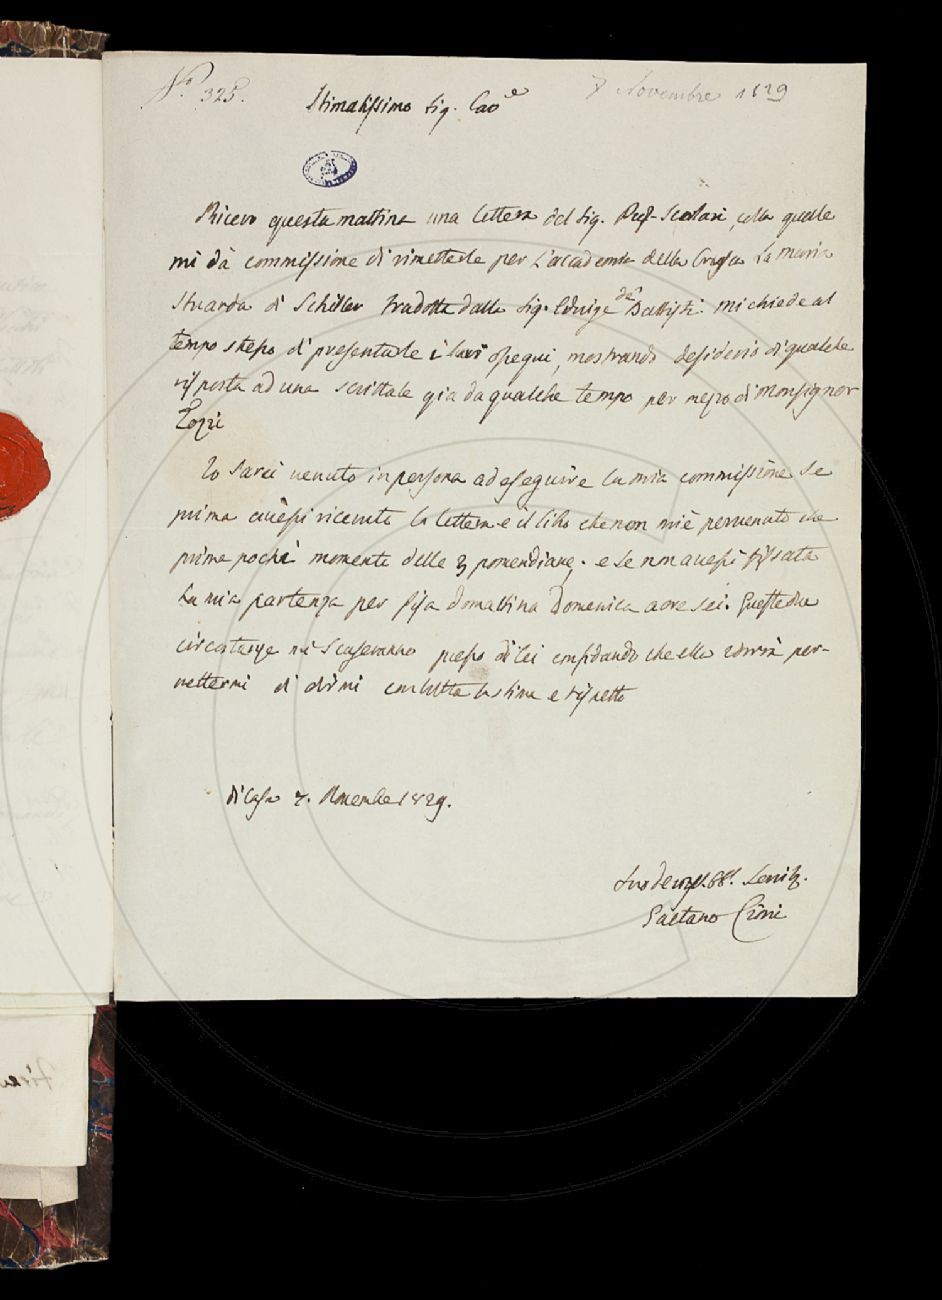 N.º 325.
7 Novembre 1829
Stimatissimo Sig. Cav.e
Ricevo questa mattina una lettera del Sig. Prof. Scolari, colla quale
mi dà commissione di rimetterle per l'accademia della Crusca La Maria
Stuarda di Schiller tradotta dalla Sig. Edvige de' Battisti. mi chiede al
tempo stesso di presentarle i suoi ossequi, mostrando desiderio di qualche
risposta ad una scrittale già da qualche tempo per mezzo di Monsignor
Pozzi
Io sarei venuto in persona ad eseguire la mia commissione se
prima avessi ricevuta la lettera e il libro che non mi è pervenuto che
prima pochi momenti delle 3 pomeridiane, e se non avessi fissata
la mia partenza per Pisa domattina Domenica a ore sei. Queste due
circostanze mi scuseranno presso di lei confidando che ella vorrà per-
mettermi di dirmi con tutta la stima e rispetto
di Casa 7. Novembre 1829.
Suo Gaetano Cioni